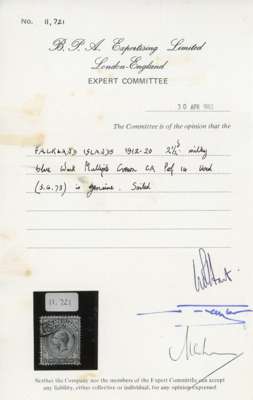 No. 11,721
B. P. A. Expertising Limited
London-England
EXPERT COMMITTEE
30 APR
The Committee is of the opinion that the
FALKLAND ISLANDS 1912-20 2½d milky
blue Wmk Multiple Crown CA Perf 14 Used
(S.G. 73) is genuine. Soiled
11,721
Neither the Company nor the members of the Expert Committee can accept
any liability, either collective or individual, for any opinion expressed.